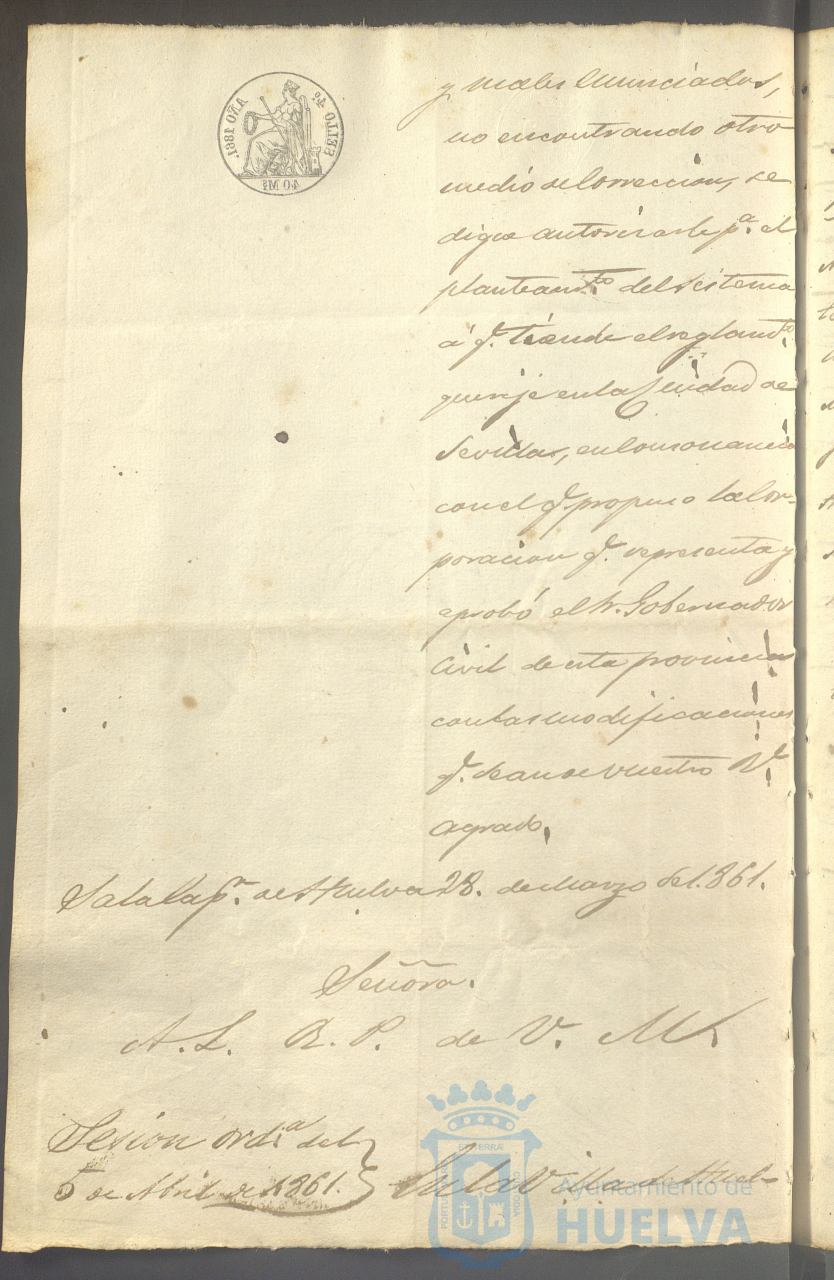 SELLO 4º AÑO 1861.
40 Mˢ
y males enunciados,
no encontrando otro
medio de correccion, se
digne autorizarle pª. el
planteamᵗᵒ del sistema
á q. tiende el reglamᵗᵒ.
que rije en la Ciudad de
Sevilla, en consonancia
con el q. propuso la Cor-
poracion q. representa y
aprobó el Sr. Gobernador
Civil de esta provincia
con las modificaciones
q. sean de vuestro Rˡ.
agrado.
Sala Capʳ. de Huelva 28. de Marzo de 1.861.
Señora.
A. L. R. P. de V. M.
Sesion ordiª del
5 de Abril de 1861.
En la Villa de Huel-
PORTUS
ET TERRÆ
CUSTODIA
Ayuntamiento de
HUELVA